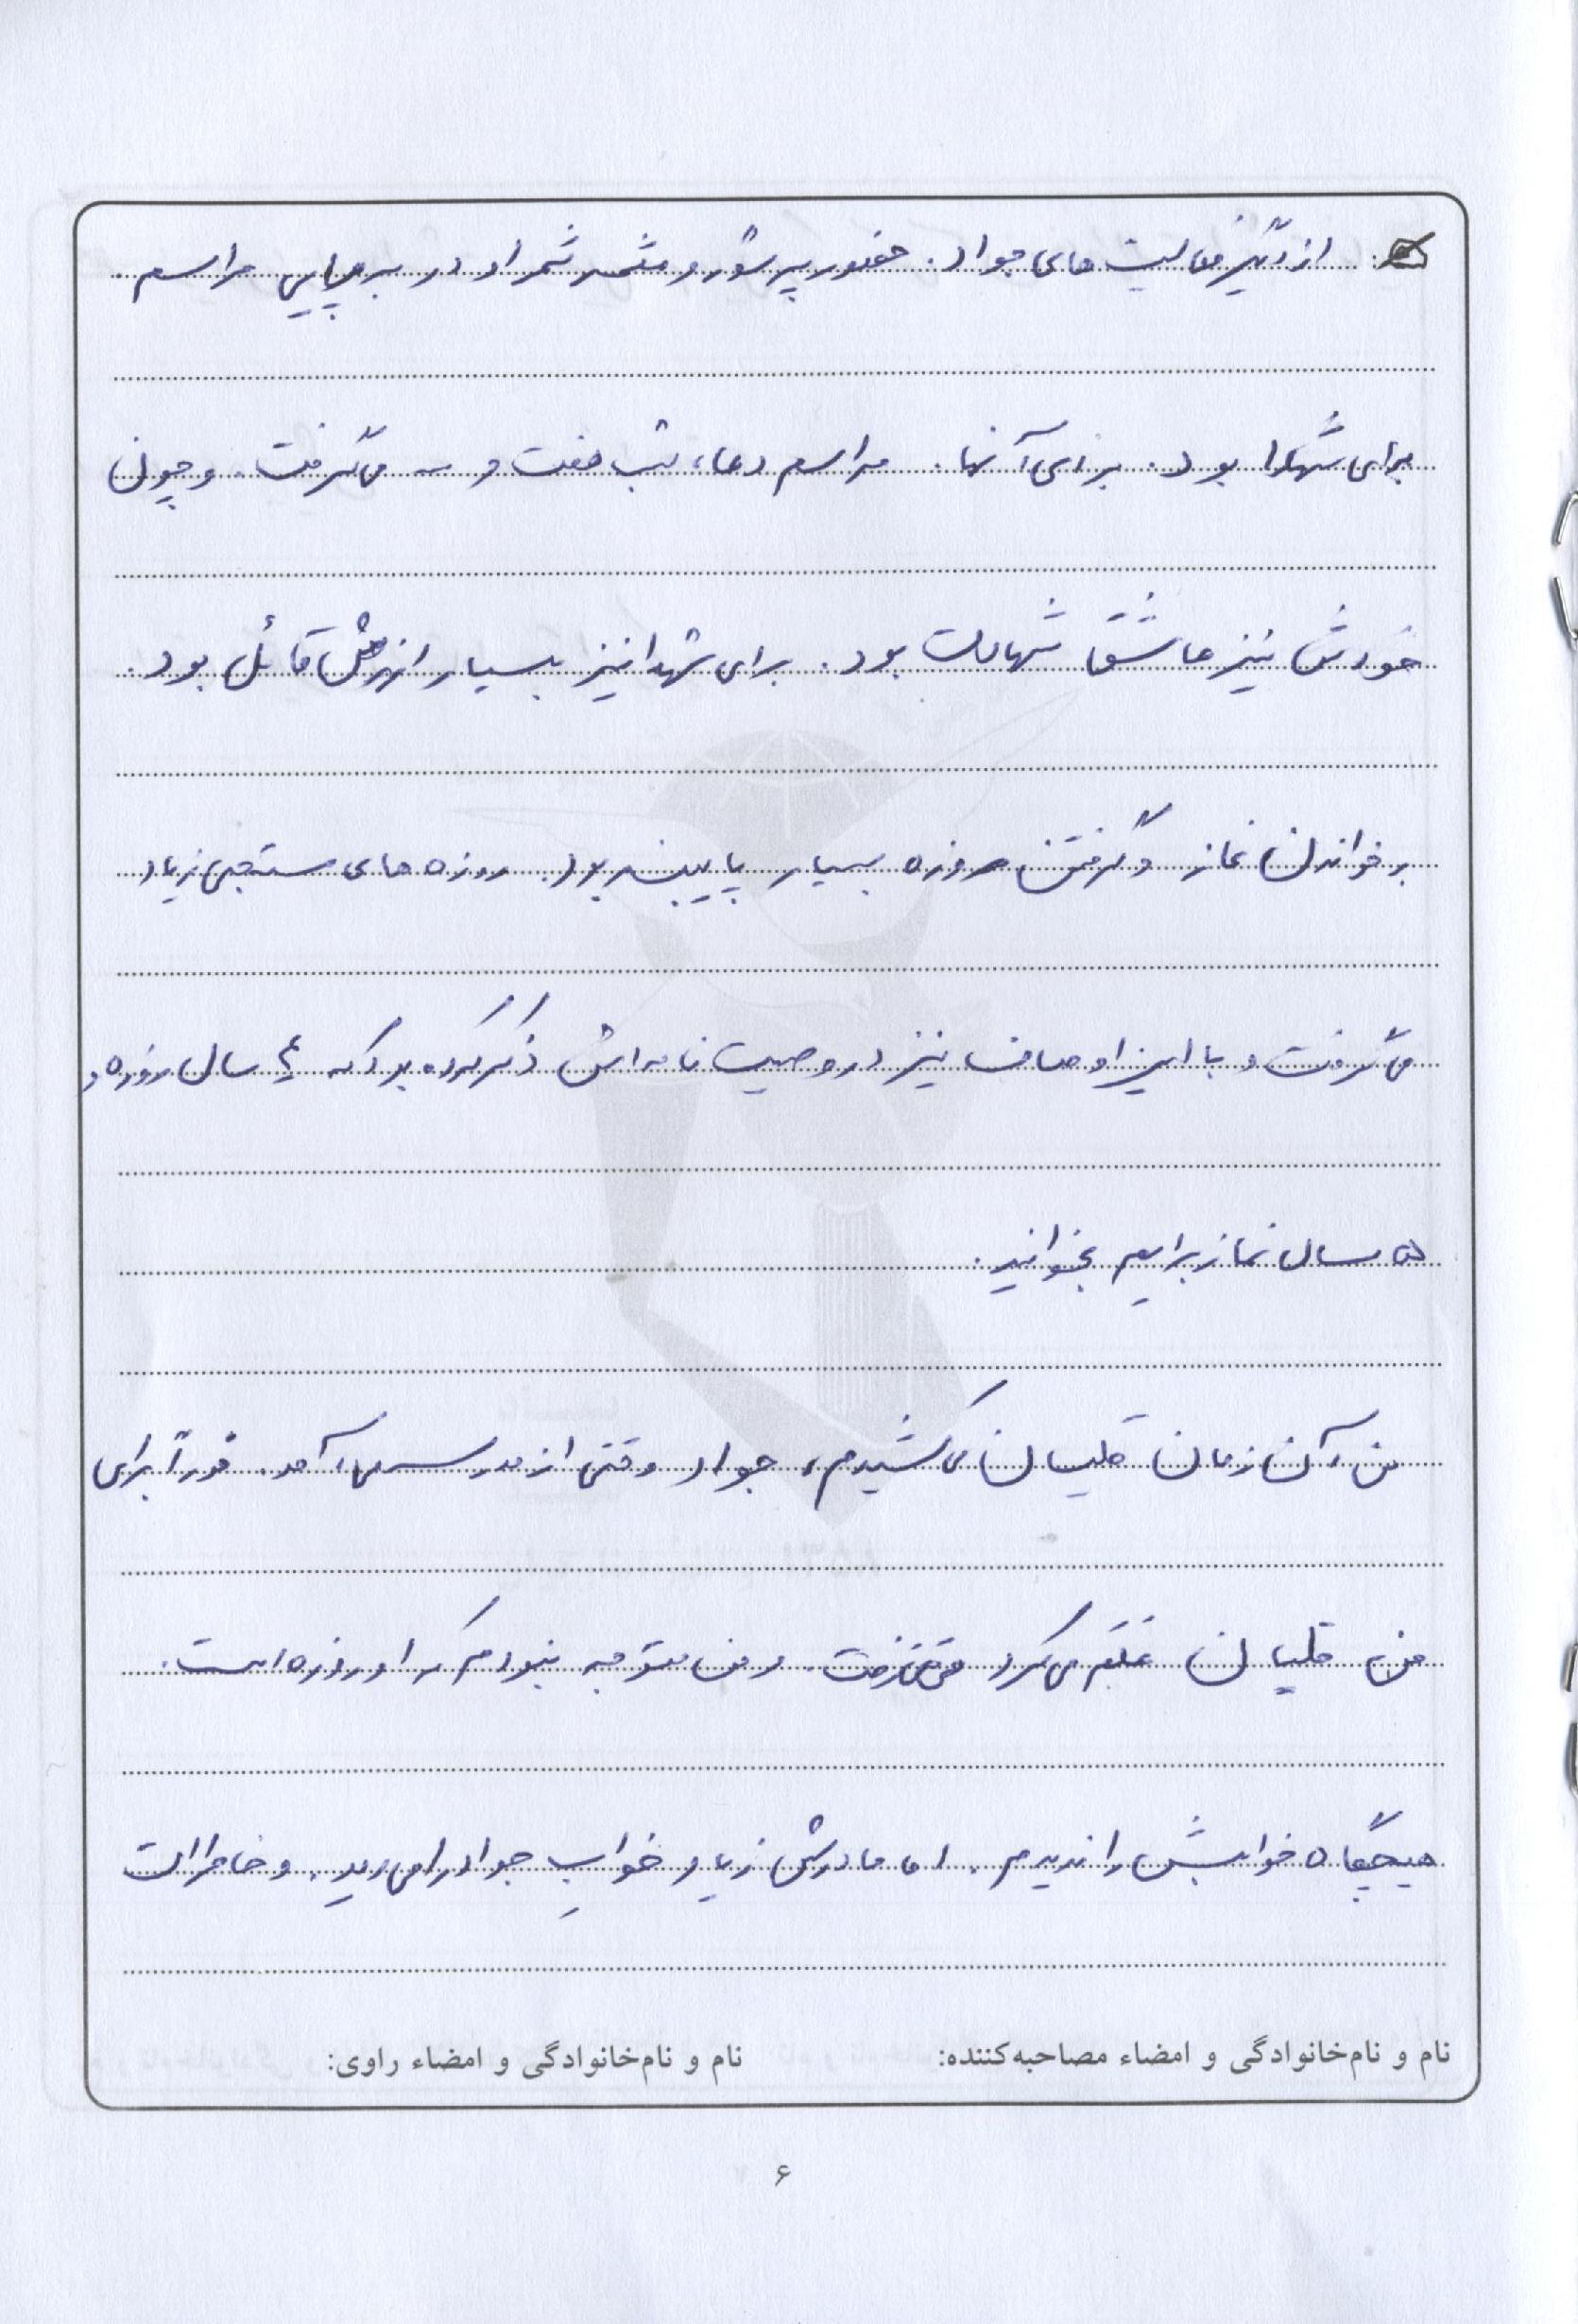 از دیگر فعالیت های جواد. حضور پر شور و مثمر ثمر او در برپایی مراسم.
برای شهدا بود. برای آنها. مراسم دعا، شب هفت و ... می گرفت. و چون
خودش نیز عاشق شهادت بود. برای شهدا نیز بسیار ارزش قائل بود.
بر خواندن نماز و گرفتن روزه بسیار پایبند بود. روزه های مستحبی زیاد
می گرفت و با این اوصاف نیز در وصیت نامه اش ذکر کرده بود که ۴ سال روزه و
۵ سال نماز برایم بخوانید.
من، آن زمان قلیان می کشیدم، جواد وقتی از مدرسه می آمد. فوراً برای
من قلیان علم می کرد و من متوجه نبودم که او روزه است.
هیچگاه خوابش را ندیدم. اما مادرش زیاد خوابِ جواد را می دید. و خاطرات
نام و نام‌خانوادگی و امضاء مصاحبه‌کننده:
نام و نام‌خانوادگی و امضاء راوی:
۶